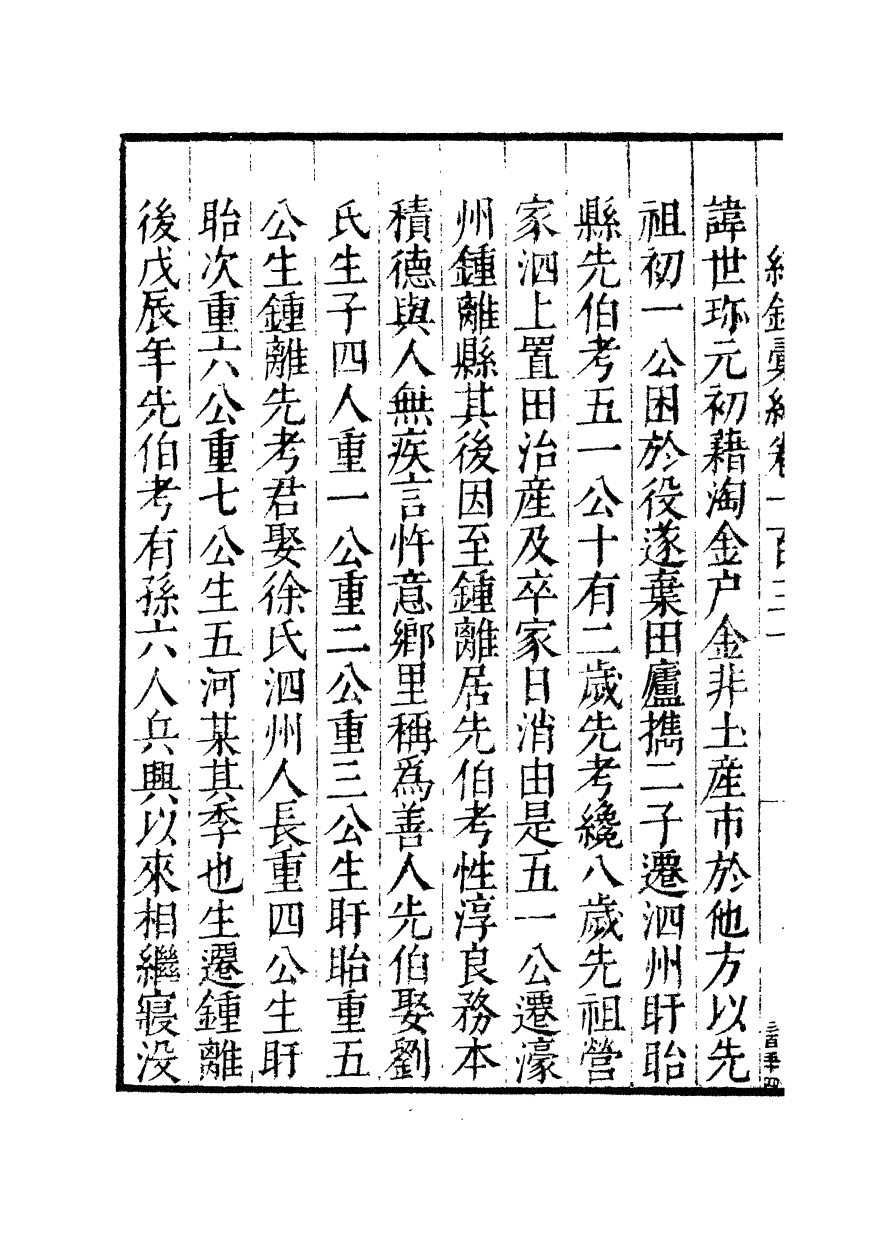 紀錄彙編卷一百三十
諱世珎元初藉淘金户金非土産市於他方以先
祖初一公困於役遂棄田廬擕二子遷泗州盱眙
縣先伯考五一公十有二歲先考纔八歲先祖營
家泗上置田治産及卒家日消由是五一公遷濠
州鍾離縣其後因至鍾離居先伯考性淳良務本
積德與人無疾言忤意鄉里稱爲善人先伯娶劉
氏生子四人重一公重二公重三公生盱眙重五
公生鍾離先考君娶徐氏泗州人長重四公生盱
眙次重六公重七公生五河某其季也生遷鍾離
後戊辰年先伯考有孫六人兵興以來相繼寢没